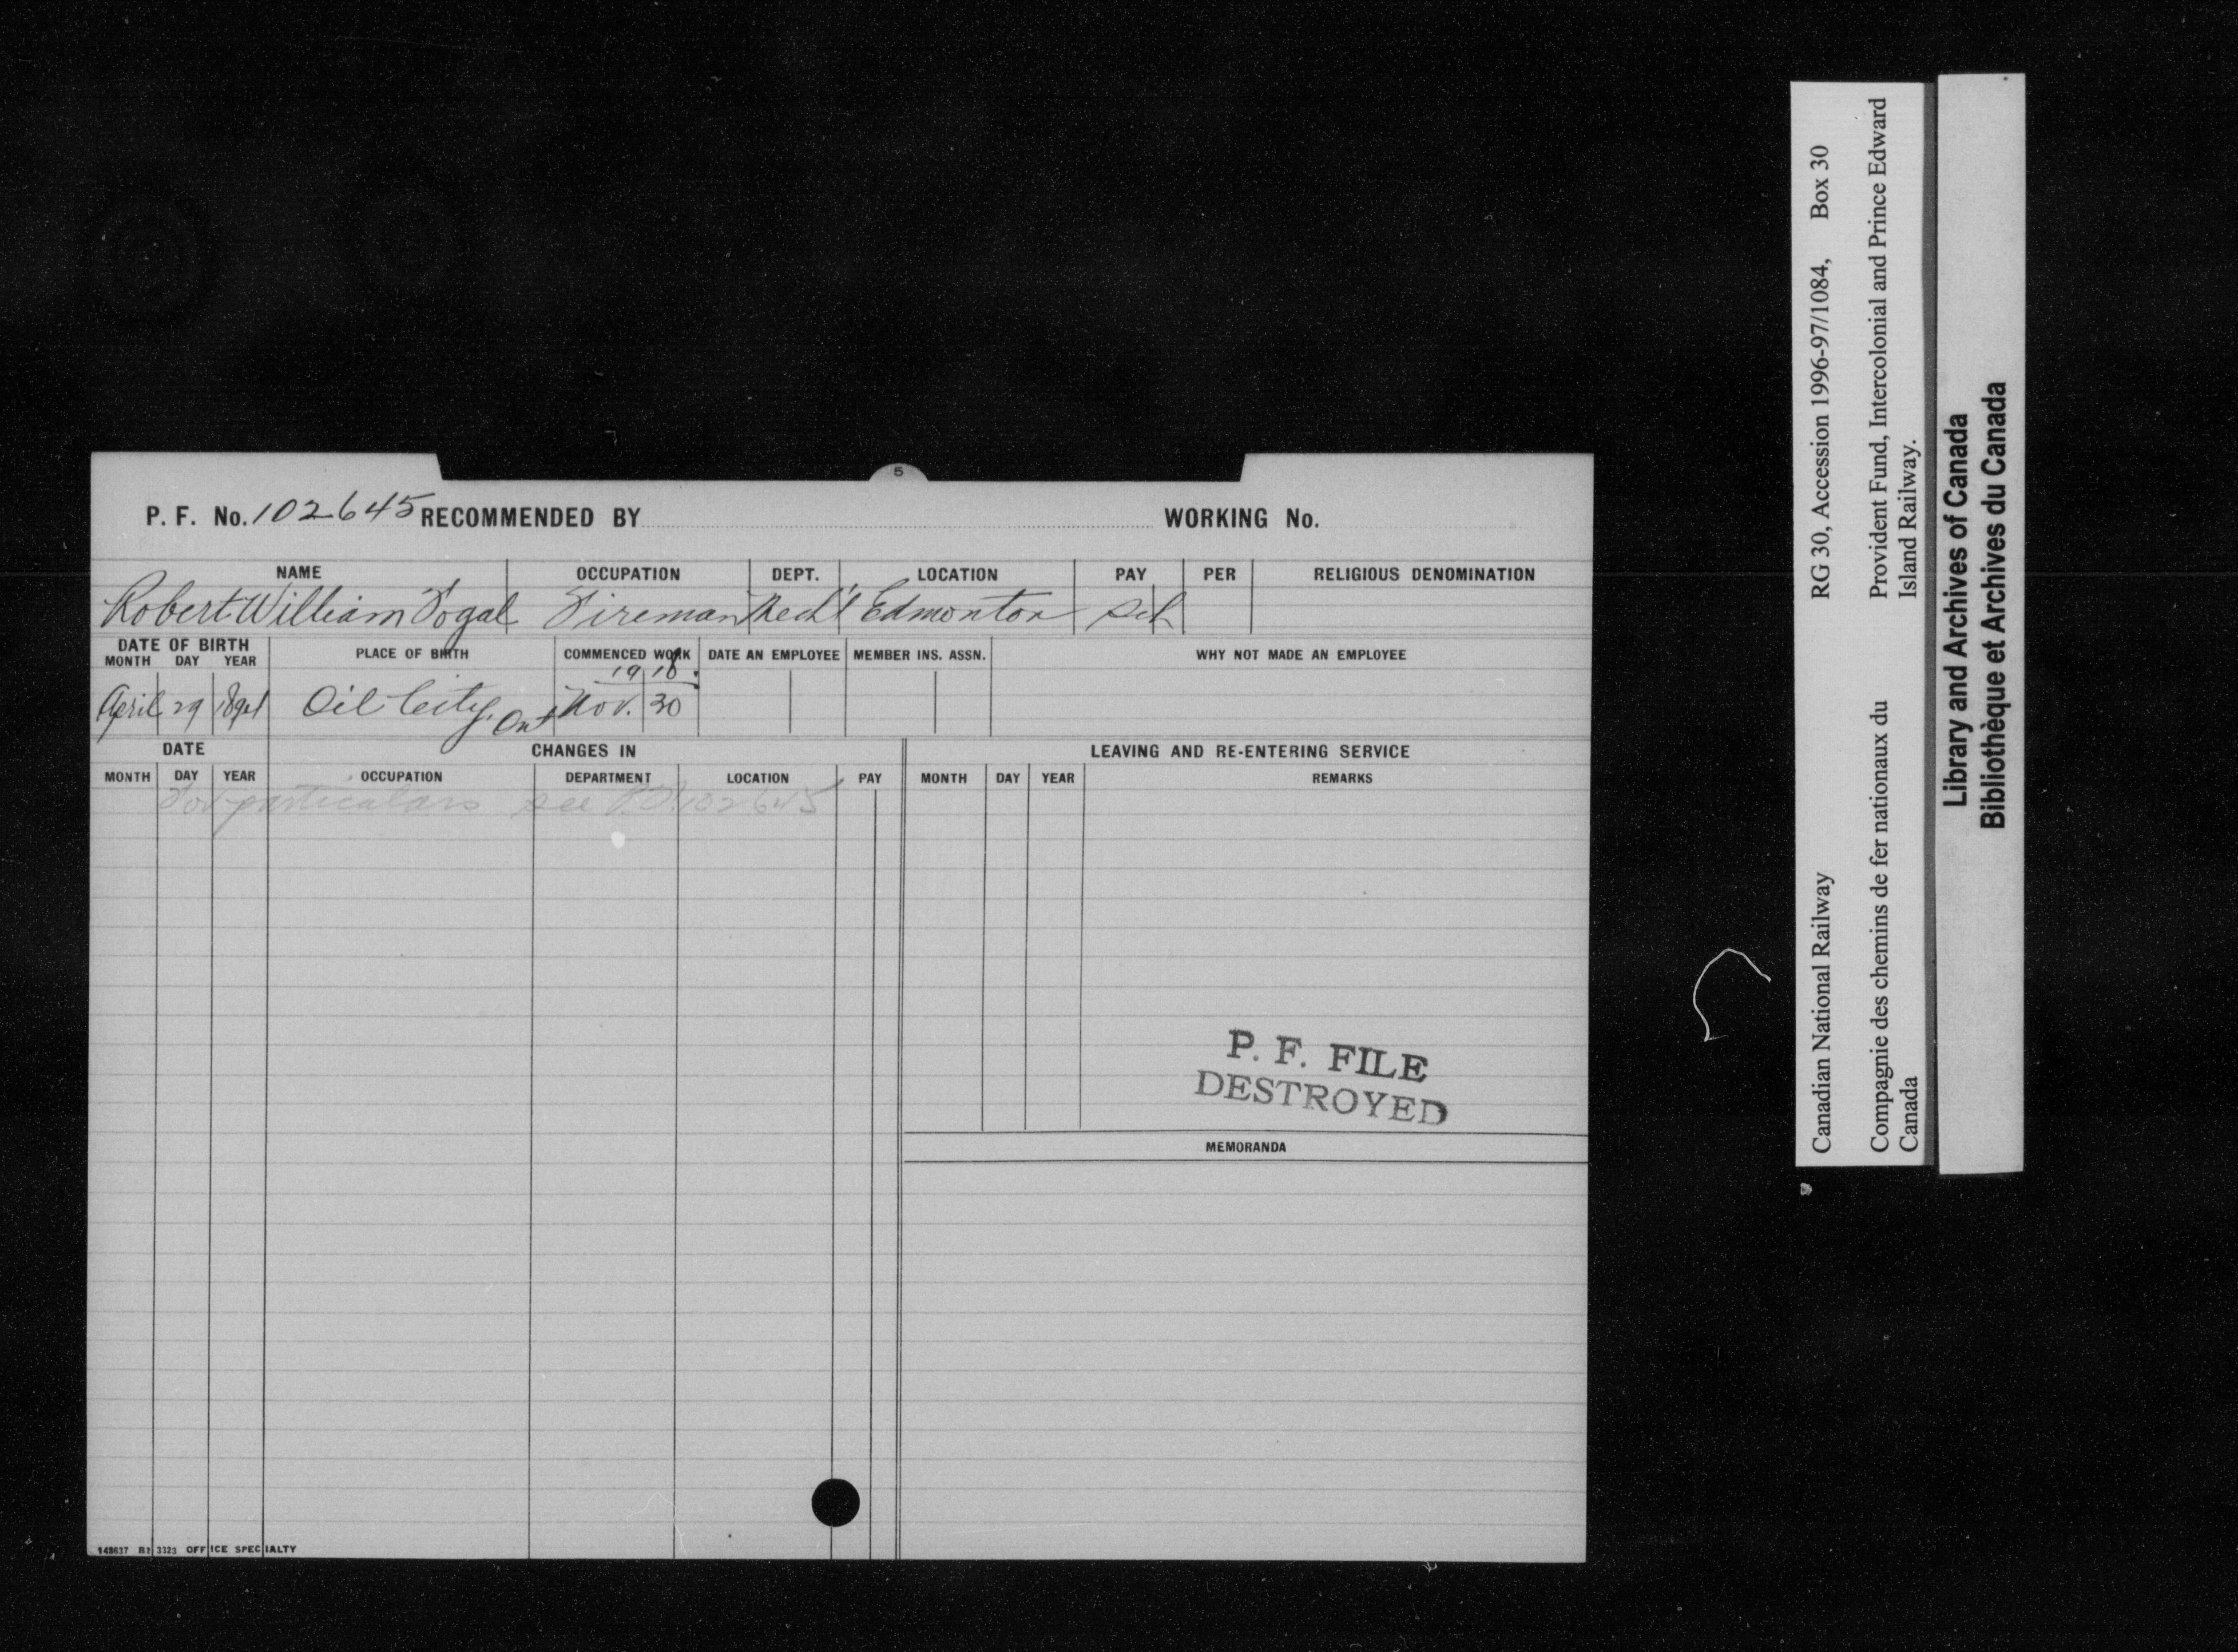 5
P. F. No. 102645 RECOMMENDED BY WORKING No.
NAME OCCUPATION DEPT. LOCATION PAY PER RELIGIOUS DENOMINATION
Robert William Fogal Fireman Mech'l Edmonton Sch
DATE OF BIRTH PLACE OF BIRTH COMMENCED WORK DATE AN EMPLOYEE MEMBER INS. ASSN. WHY NOT MADE AN EMPLOYEE
MONTH DAY YEAR
1918.
April 29 Oil City, Ont Nov. 30
DATE CHANGES IN LEAVING AND RE-ENTERING SERVICE
MONTH DAY YEAR OCCUPATION DEPARTMENT LOCATION PAY MONTH DAY YEAR REMARKS
For particulars see P.F. 102645
P. F. FILE
DESTROYED
MEMORANDA
148637 B1 3323 OFFICE SPECIALTY
Canadian National Railway RG 30, Accession 1996-97/1084, Box 30
Compagnie des chemins de fer nationaux du Provident Fund, Intercolonial and Prince Edward
Canada Island Railway.
Library and Archives of Canada
Bibliothèque et Archives du Canada